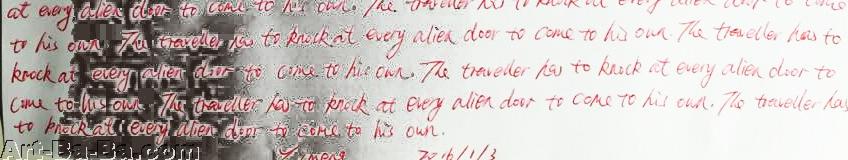 at every alien door to come to his own. The traveller has to knock at every alien door to come
to his own. The traveller has to knock at every alien door to come to his own. The traveller has to
knock at every alien door to come to his own. The traveller has to knock at every alien door to
come to his own. The traveller has to knock at every alien door to come to his own. The traveller has
to knock at every alien door to come to his own.
2016/1/3
Art-Ba-Ba.com